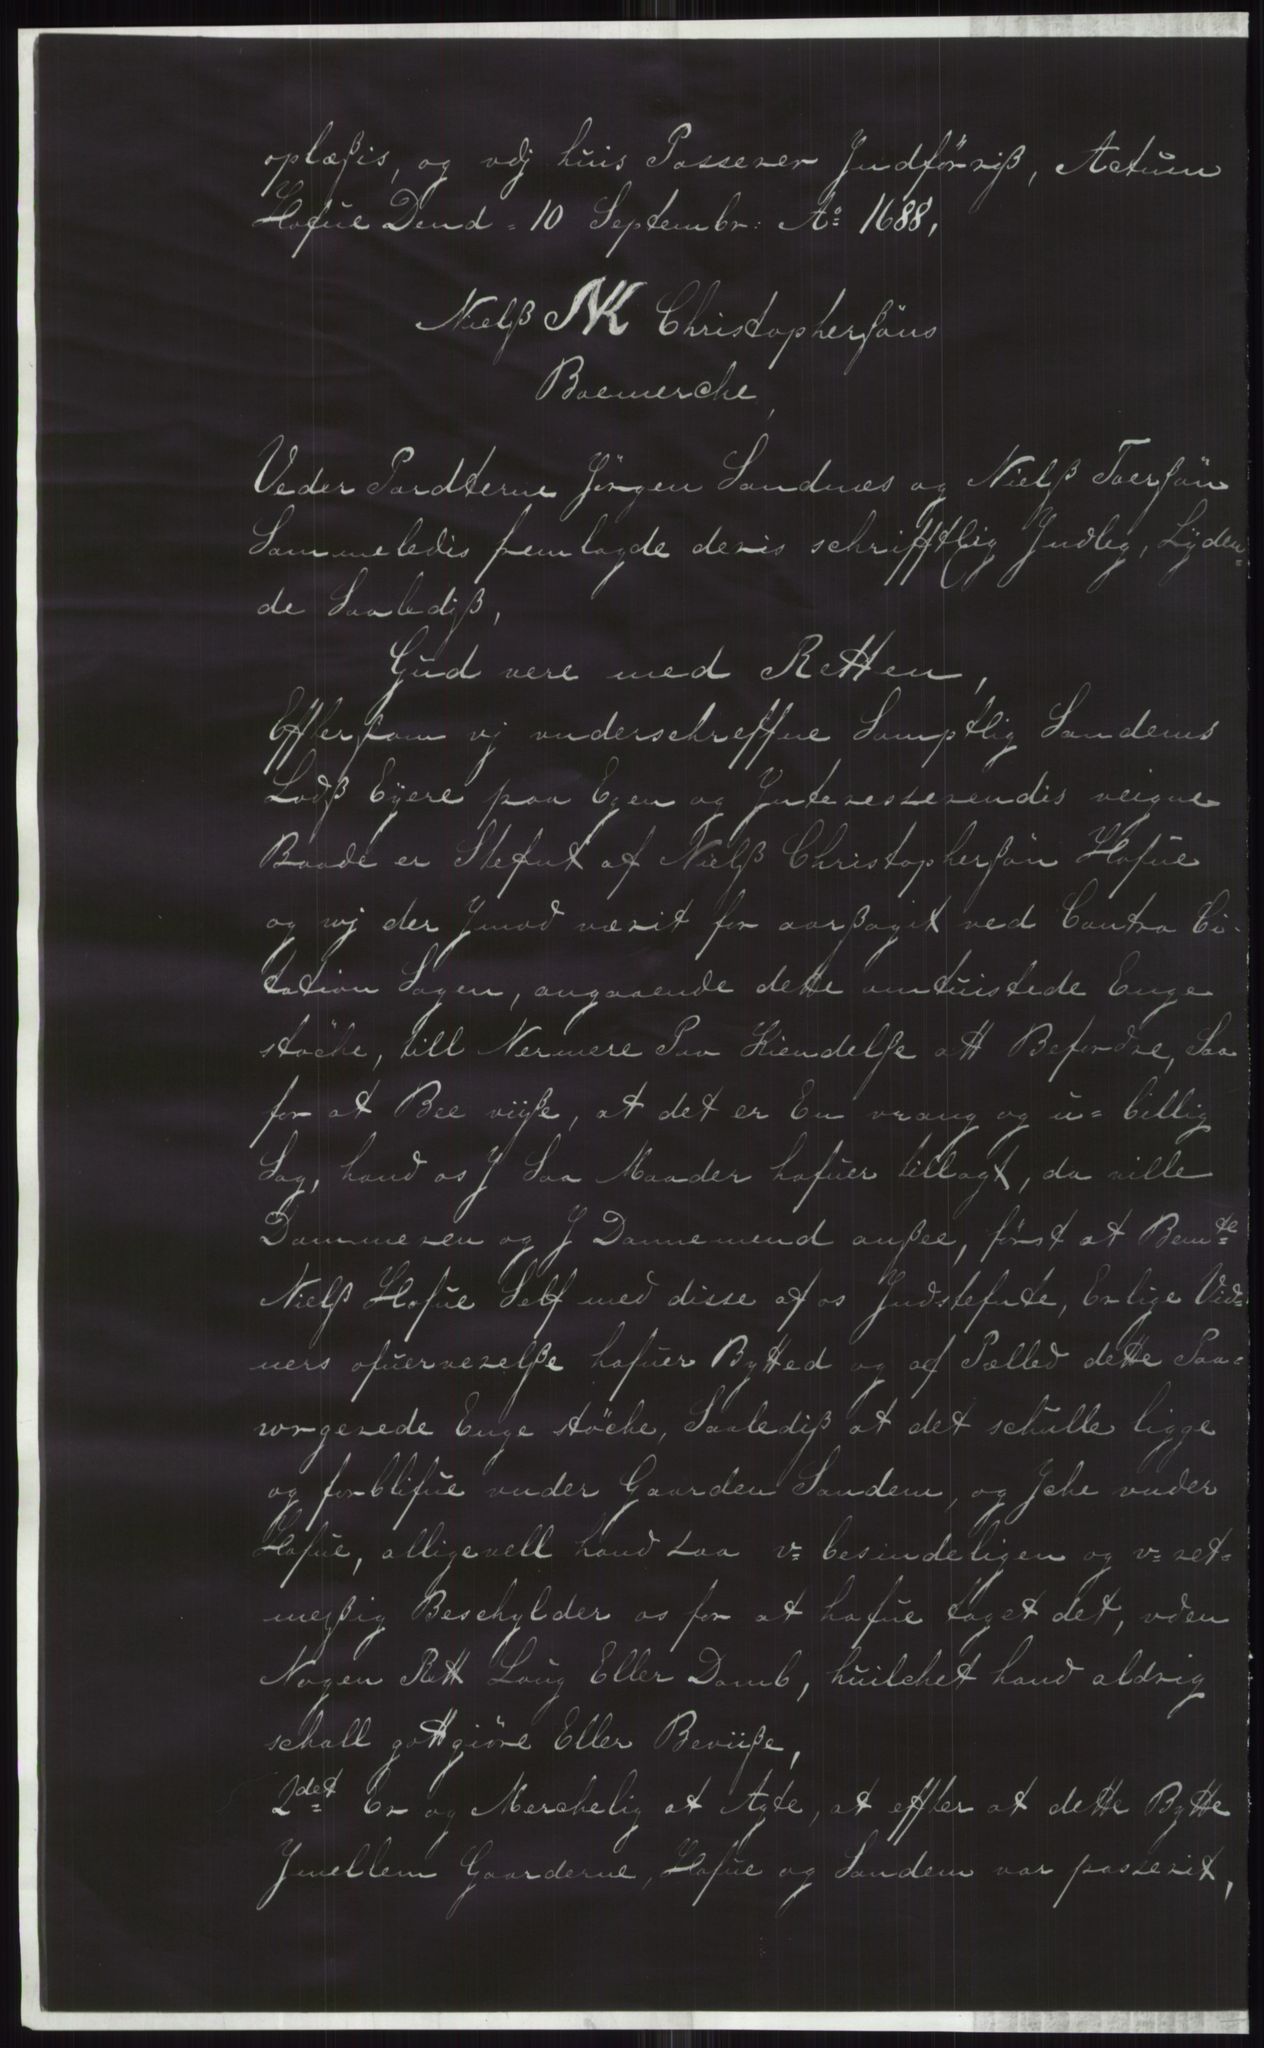 oplæßis, og vdj huis Passerer Jndförriß, Actum
Hofue Dend = 10 Septembr: Aº 1688,
Nielß NK Christopherßöns
Boemerche,
Veder Pardterne Jörgen Sandnes og Nielß Toerßön
Sammeledis fremlagde deris schrifftlig Jndleg, Lyden=
de Saalediß,
Gud vere med Retten,
Effterßom vj vnderschreffne Samptlig Sandems
Lodß Eyere paa Egen og Jnteresserendis veigne
Baade er Stefnt af Nielß Christopherßön Hofue
og vj der Jmod værit for aarßagit ved Contra Ci-
tation Sagen, angaaende dette omtuistede Enge
støche, till Nermere Paa Kiendelße att Befordre, Saa
for at Bee viiße, at det er En vrang og u= billig
Sag, hand os J Saa Maader hafuer tillagt, da ville
Dommeren og J Dannemend anßee, först at Bemte
Nielß Hofue Self med disse af os Jndstefnte, Erlige Vid=
ners ofuerverelße hafuer Bytted og af Pælled dette Paa=
vorgerede Enge støche, Saalediß at det schulle ligge
og forblifue vnder Gaarden Sandem, og Jche vnder
Hofue, alligevell hand saa v= besindeligen og v= ret=
meßig Beschylder os for at hafue taget det, vden
Nogen Rett Loug Eller Domb, huilchet hand aldrig
schall gottgiöre Eller Beviiße,
2det Er og Merchelig at Agte, at effter at dette Bytte
Jmellem Gaarderne, Hofue og Sandem var passerit,